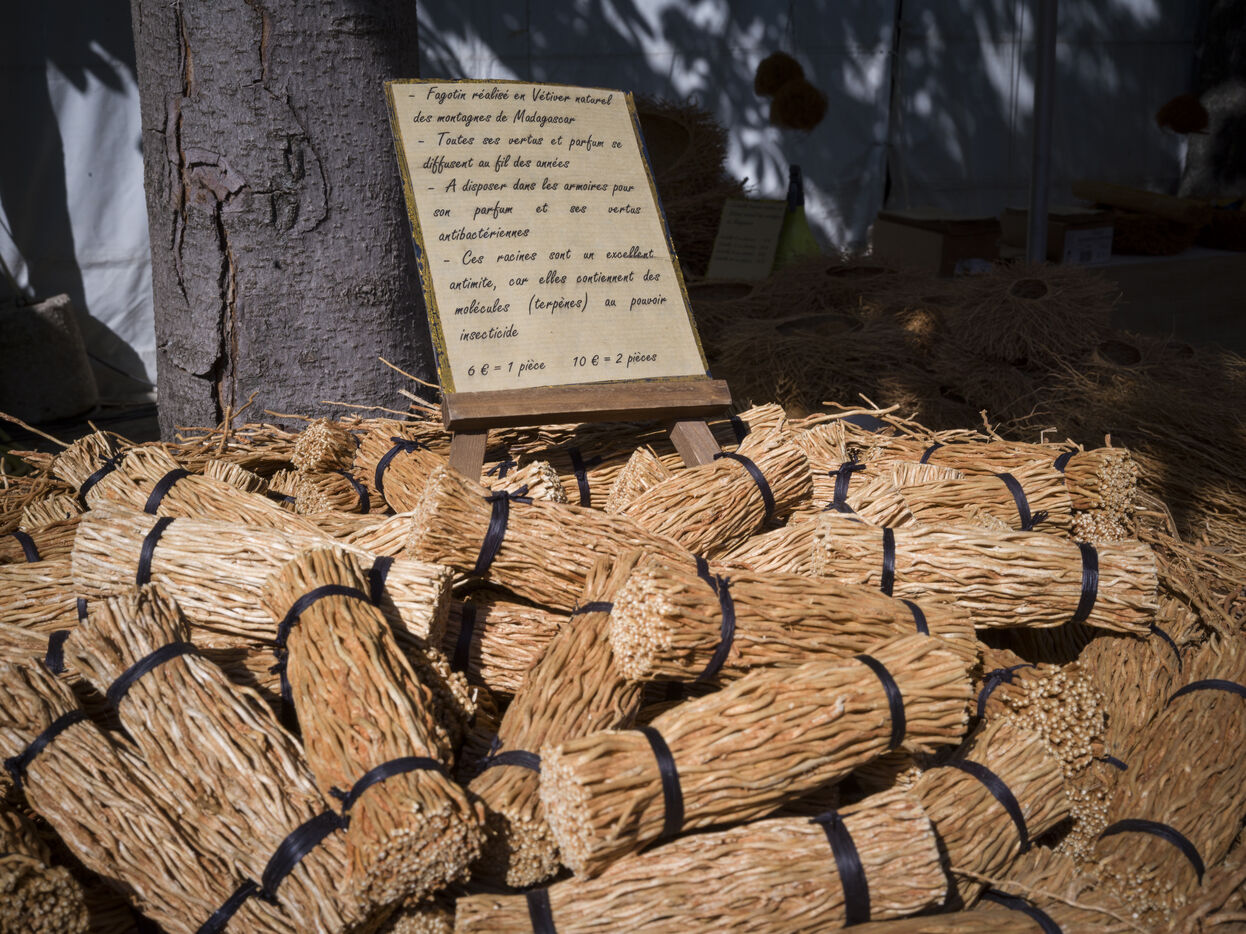 - Fagotin réalisé en Vétiver naturel
des montagnes de Madagascar
- Toutes ses vertus et parfum se
diffusent au fil des années
- A disposer dans les armoires pour
son parfum et ses vertus
antibactériennes
- Ces racines sont un excellent
antimite, car elles contiennent des
molécules (terpènes) au pouvoir
insecticide
6 € = 1 pièce 10 € = 2 pièces